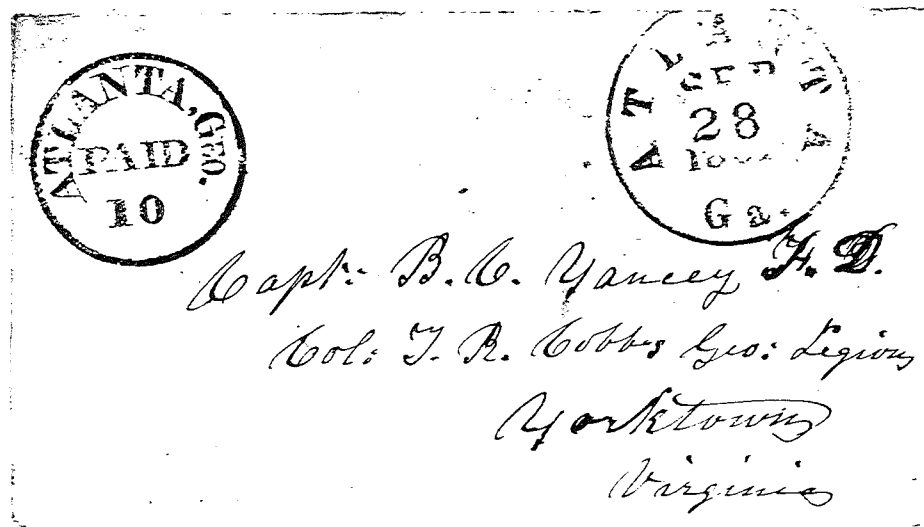 ATLANTA, GEO.
PAID
10
ATLANTA
SEP
28
Ga.
Capt: B. C. Yancey F. D.
Col: T. R. Cobbs Geo: Legion
Yorktown
Virginia